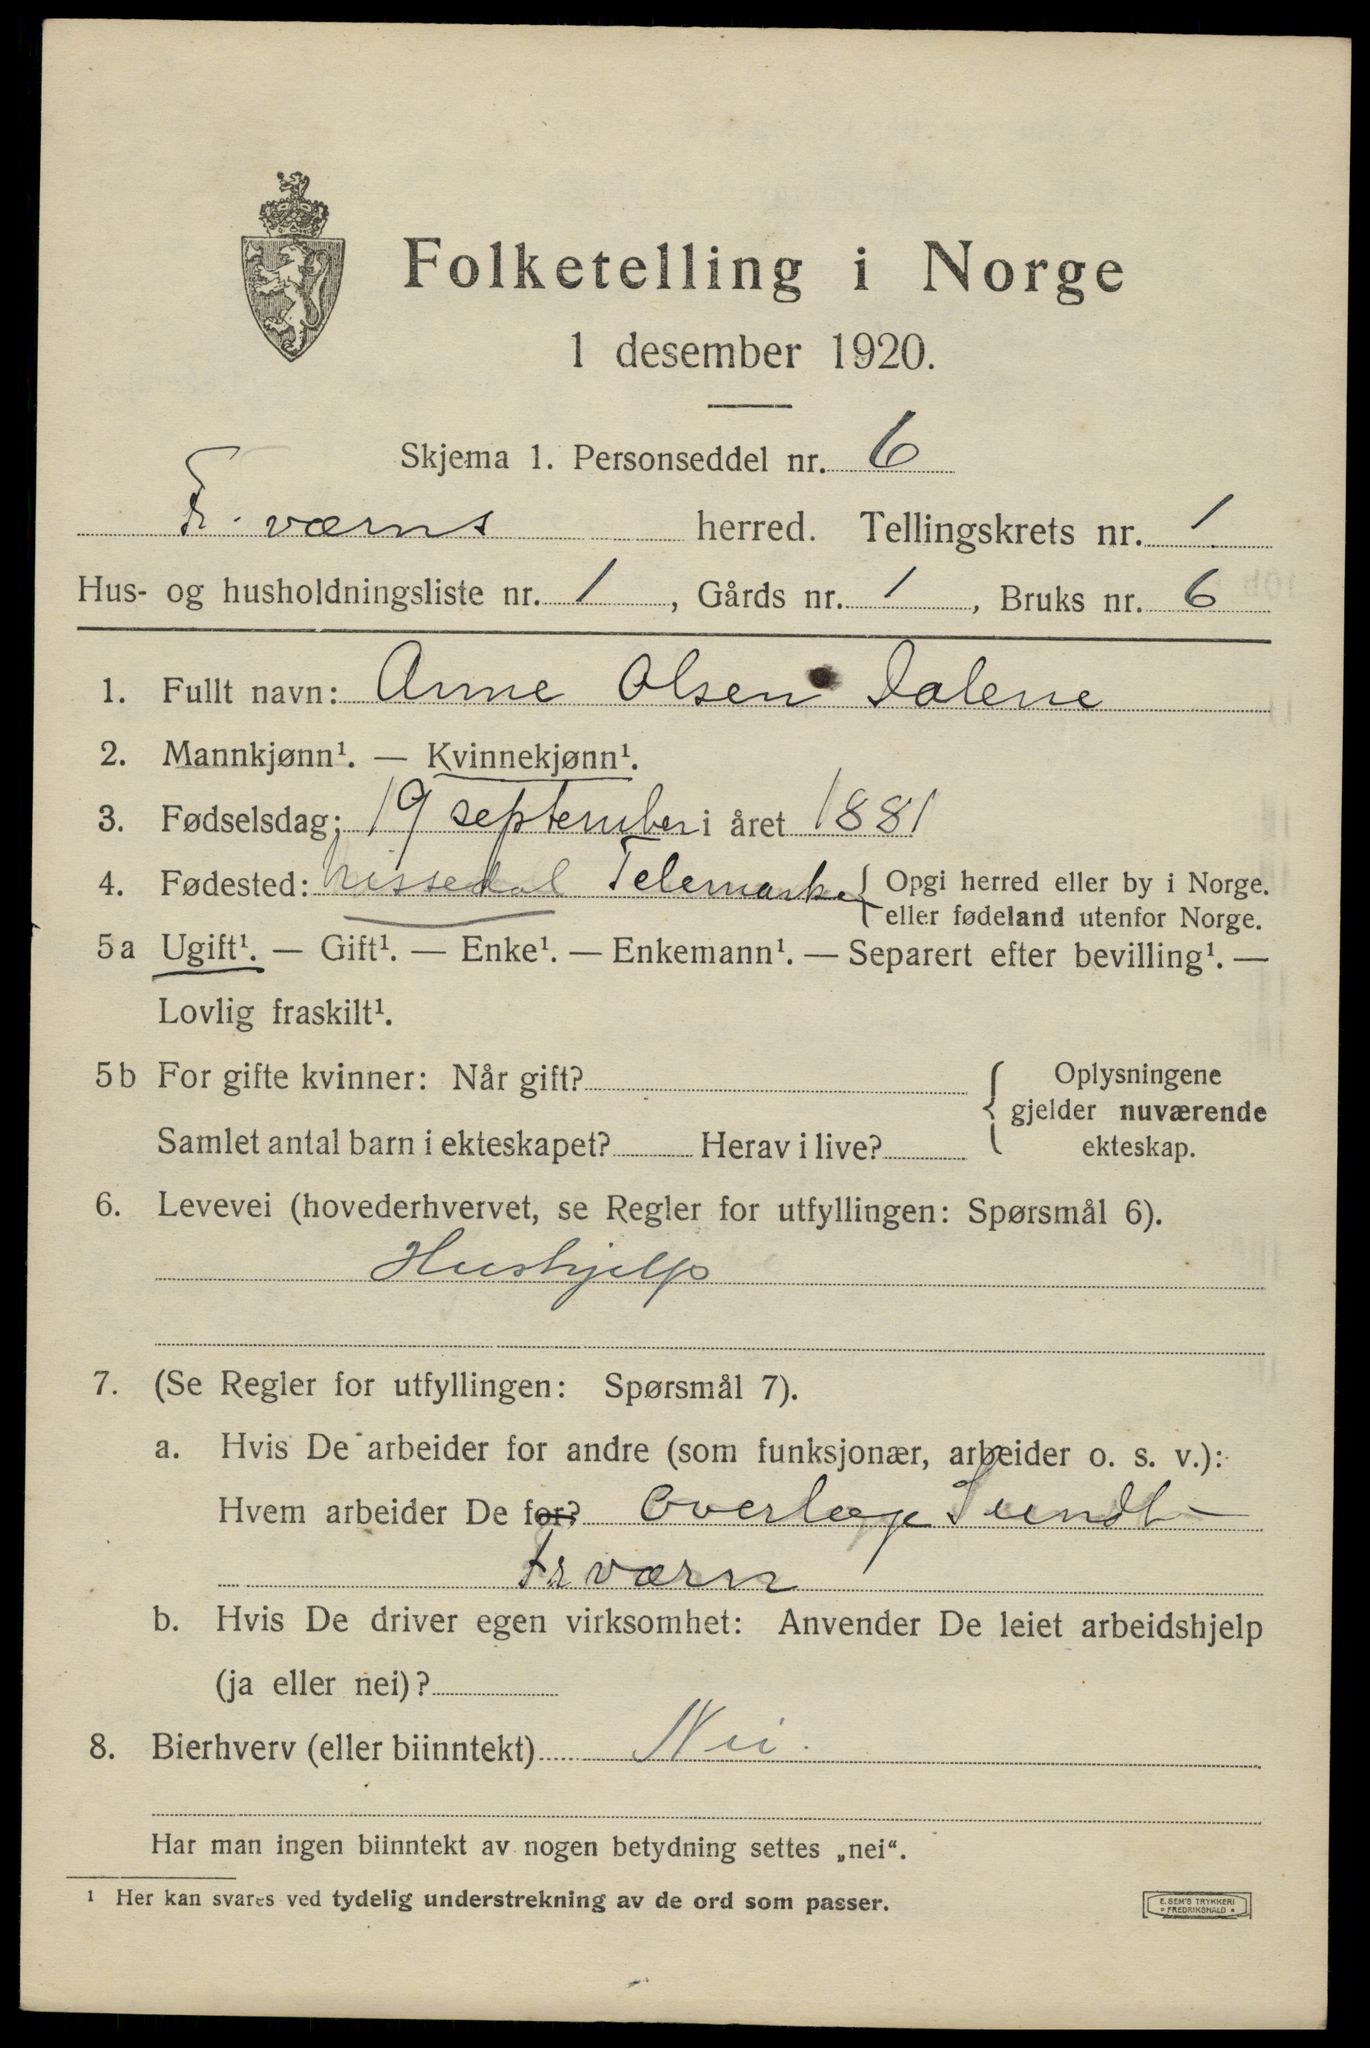 Folketelling i Norge
1 desember 1920.
Skjema 1. Personseddel nr. 6
Fr. værns herred. Tellingskrets nr. 1
Hus- og husholdningsliste nr. 1, Gårds nr. 1, Bruks nr. 6
1. Fullt navn: Anne Olsen Dalene
2. Mannkjønn¹. — Kvinnekjønn¹.
3. Fødselsdag: 19 september i året 1881
4. Fødested: Nissedal Telemarken { Opgi herred eller by i Norge.
eller fødeland utenfor Norge.
5a Ugift¹. — Gift¹. — Enke¹. — Enkemann¹. — Separert efter bevilling¹. —
Lovlig fraskilt¹.
5b For gifte kvinner: Når gift?
Samlet antal barn i ekteskapet? Herav i live?
Oplysningene
gjelder nuværende
ekteskap.
6. Levevei (hovederhvervet, se Regler for utfyllingen: Spørsmål 6).
Hushjelp
7. (Se Regler for utfyllingen: Spørsmål 7).
a. Hvis De arbeider for andre (som funksjonær, arbeider o. s. v.):
Hvem arbeider De for? Overlæge Sundt
Fr værn
b. Hvis De driver egen virksomhet: Anvender De leiet arbeidshjelp
(ja eller nei)?
8. Bierhverv (eller biinntekt) Nei.
Har man ingen biinntekt av nogen betydning settes „nei“.
¹ Her kan svares ved tydelig understrekning av de ord som passer.
E. SEM'S TRYKKERI
FREDRIKSHALD